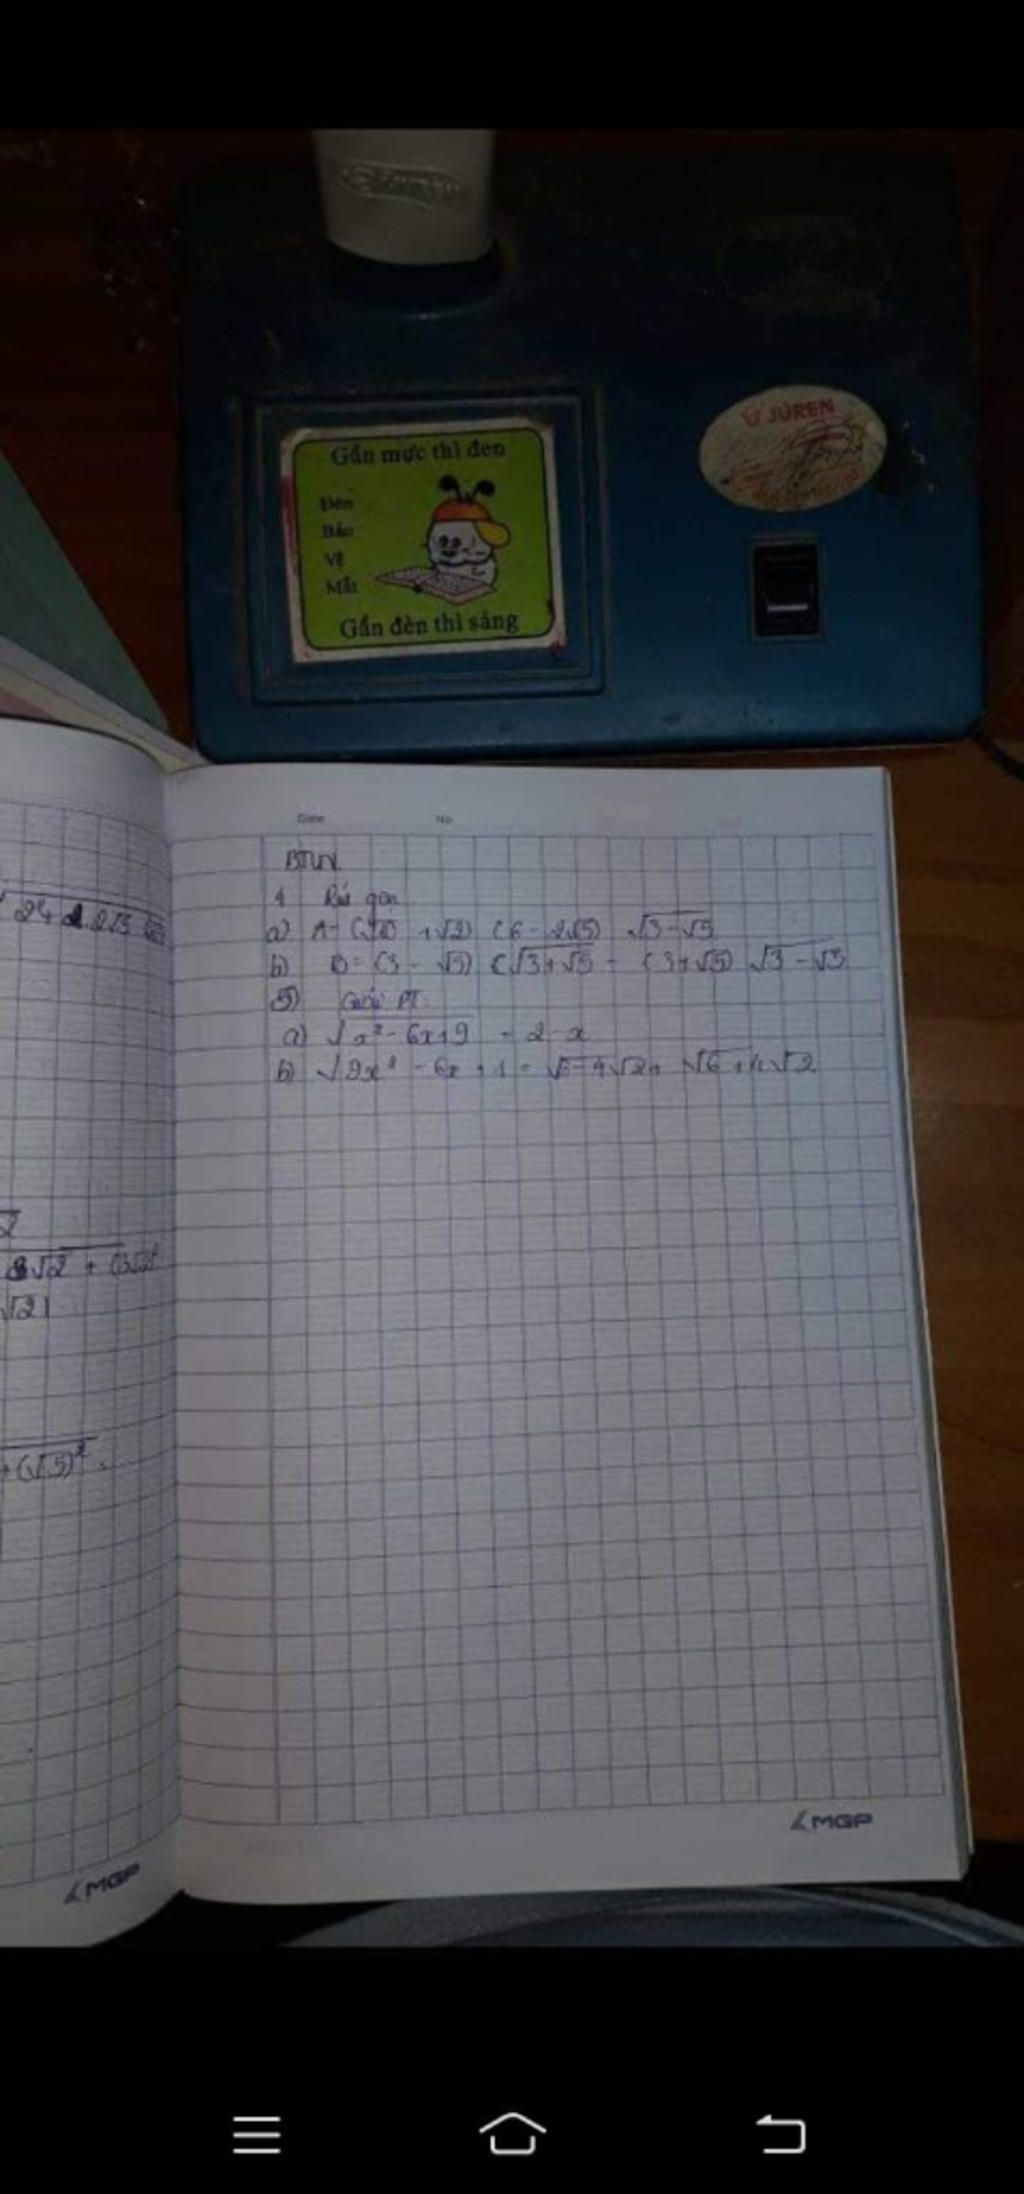 Gần mực thì đen
Đèn
Bảo
Vệ
Mắt
Gần đèn thì sáng
JUREN
Date No
BTVN
4 Rút gọn
a) A = (√10 + √2) (6 - 2√5) √3-√5
b) B = (3 - √5) (√3+√5 - (3+√5) √3-√5
5) Giải PT
a) √x² - 6x+9 = 2 - x
b) √9x² - 6x + 1 = √6-4√2 + √6+4√2
MGP
24 2.2√3
√2
8√2 + (3√2)²
√2 |
+ (√5)²
MGP